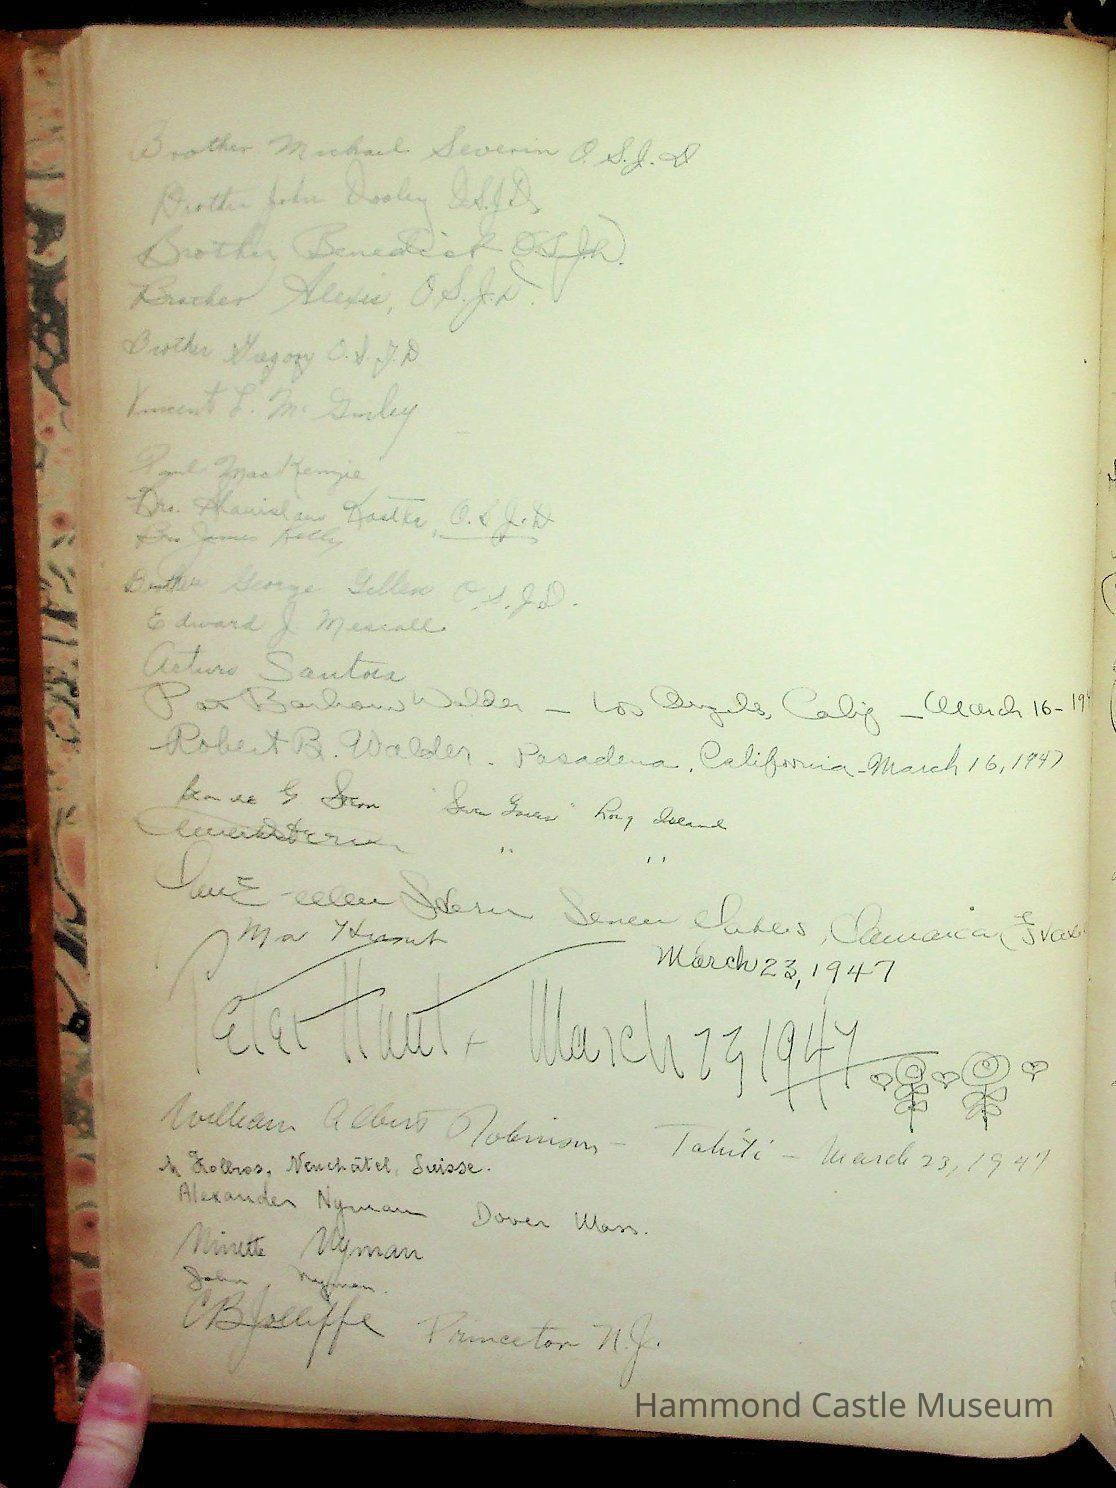 Brother Michael Severin O.S.J.D
Brother John Dooley O.S.J.D.
Brother Benedict O.S.J.D.
Brother Alexis, O.S.J.D.
Brother Gregory O.S.J.D.
Vincent L. Mc Ginley
Paul MacKenzie
Bro. Stanislaus Kostka, O.S.J.D
Bro James Kelly
Brother George Gillen O.S.J.D.
Edward J. Mescall
Arturo Santos
Pat Barbour Walder — Los Angeles, Calif — March 16 - 19
Robert R. Walder. Pasadena, California - March 16, 1947
G Stern Long Island
" "
Ellen Stern Seven Gates, Jamaica
March 23, 1947
Peter Hunt + March 23 1947
William Albert Robinson — Tahiti — March 23, 1947
Neuchâtel, Suisse.
Alexander Nyman Dover Mass.
Minette Nyman
John Nyman.
CB Jolliffe Princeton N.J.
Hammond Castle Museum